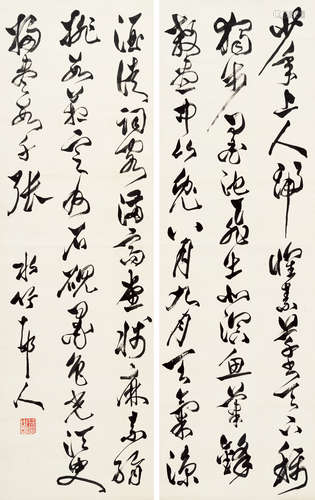 少年上人號懷素草書天下稱
獨步墨池飛出北溟魚筆鋒
殺盡中山兔八月九月天氣涼
酒徒詞客滿高堂牋麻素絹
排數箱宣州石硯墨色光須臾
掃盡數千張 水竹邨人